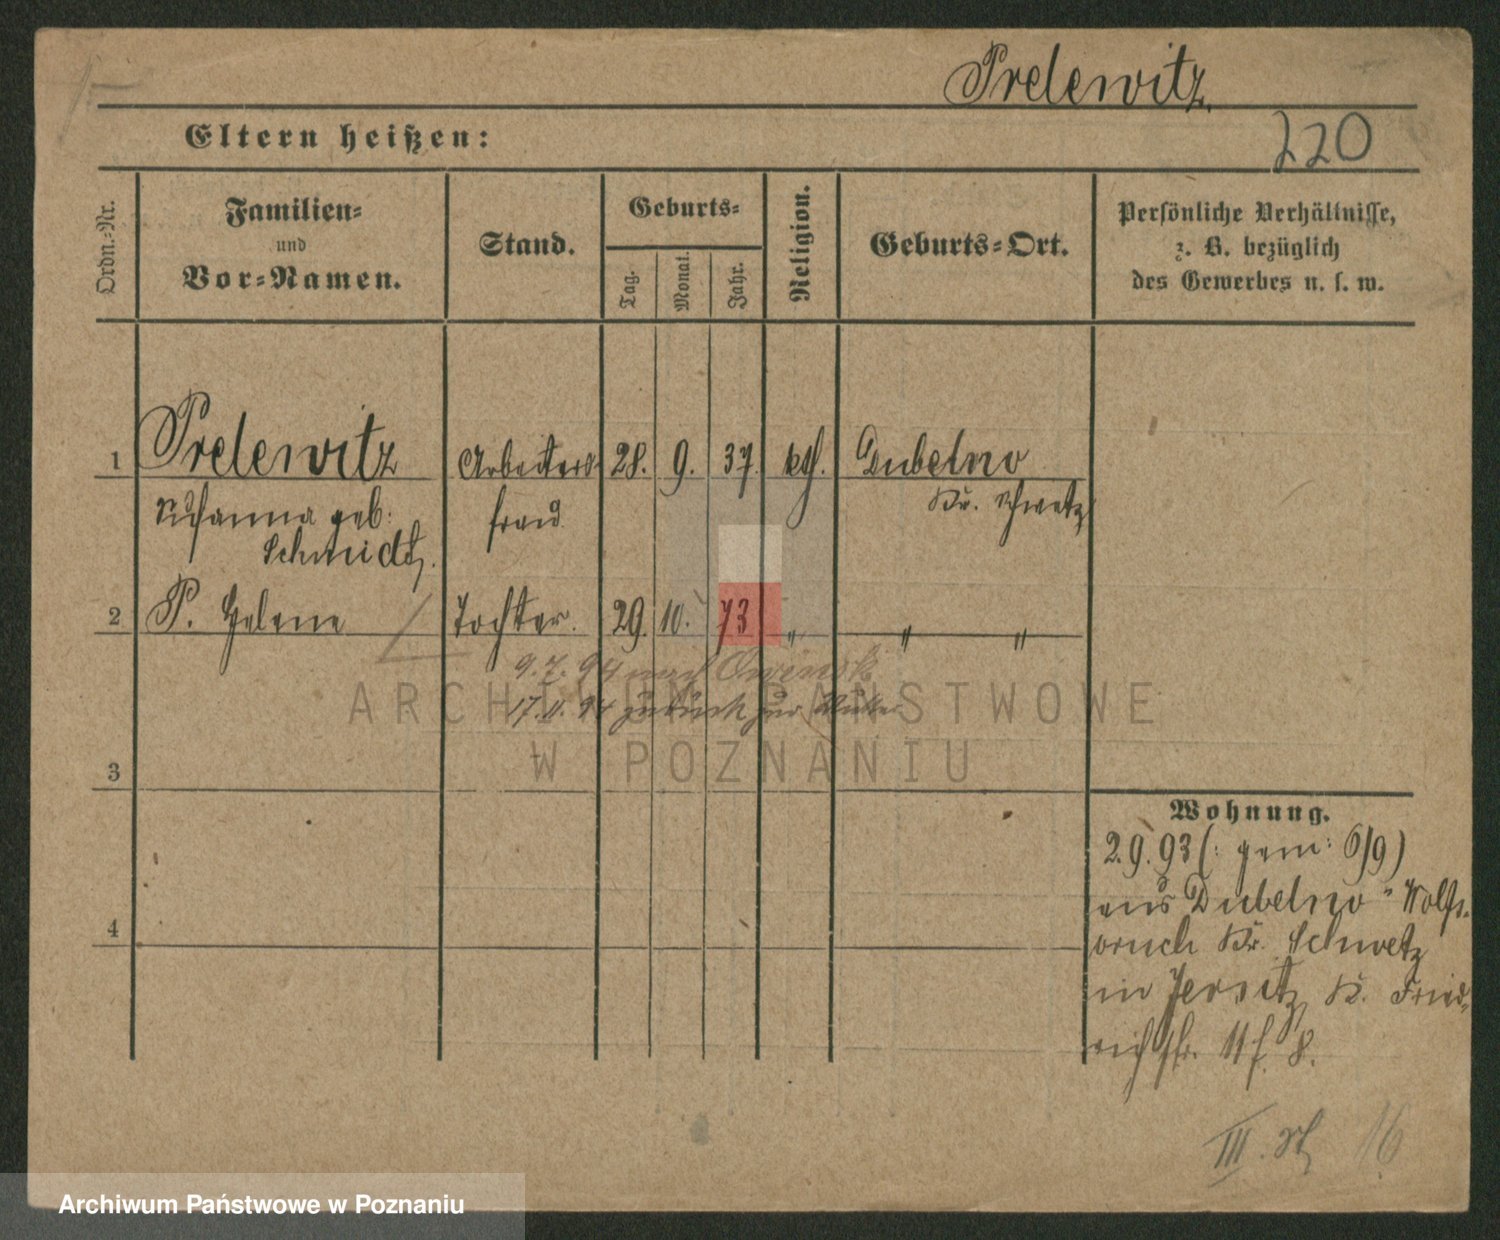 Prelewitz.
Eltern heißen:
220
Ordn.-Nr.
Familien-
und
Vor-Namen.
Stand.
Geburts-
Tag.
Monat.
Jahr.
Religion.
Geburts-Ort.
Persönliche Verhältnisse,
z. B. bezüglich
des Gewerbes u. s. w.
1 Prelewitz Arbeiters- 28. 9. 37. kth. Dubelno
Susanna geb: frau Kr. Schwetz
Schmidt.
2 P. Helene Tochter. 29. 10. 73 " " "
9.7.94 nach Owinsk
17.11.94 zurück zur Mutter
ARCHIWUM PAŃSTWOWE
W POZNANIU
3
4
Wohnung.
2.9.93 (: gem: 6/9)
aus Dubelno
Kr. Schwetz
in Jersitz Fried-
richstr. 11
III. 16
Archiwum Państwowe w Poznaniu